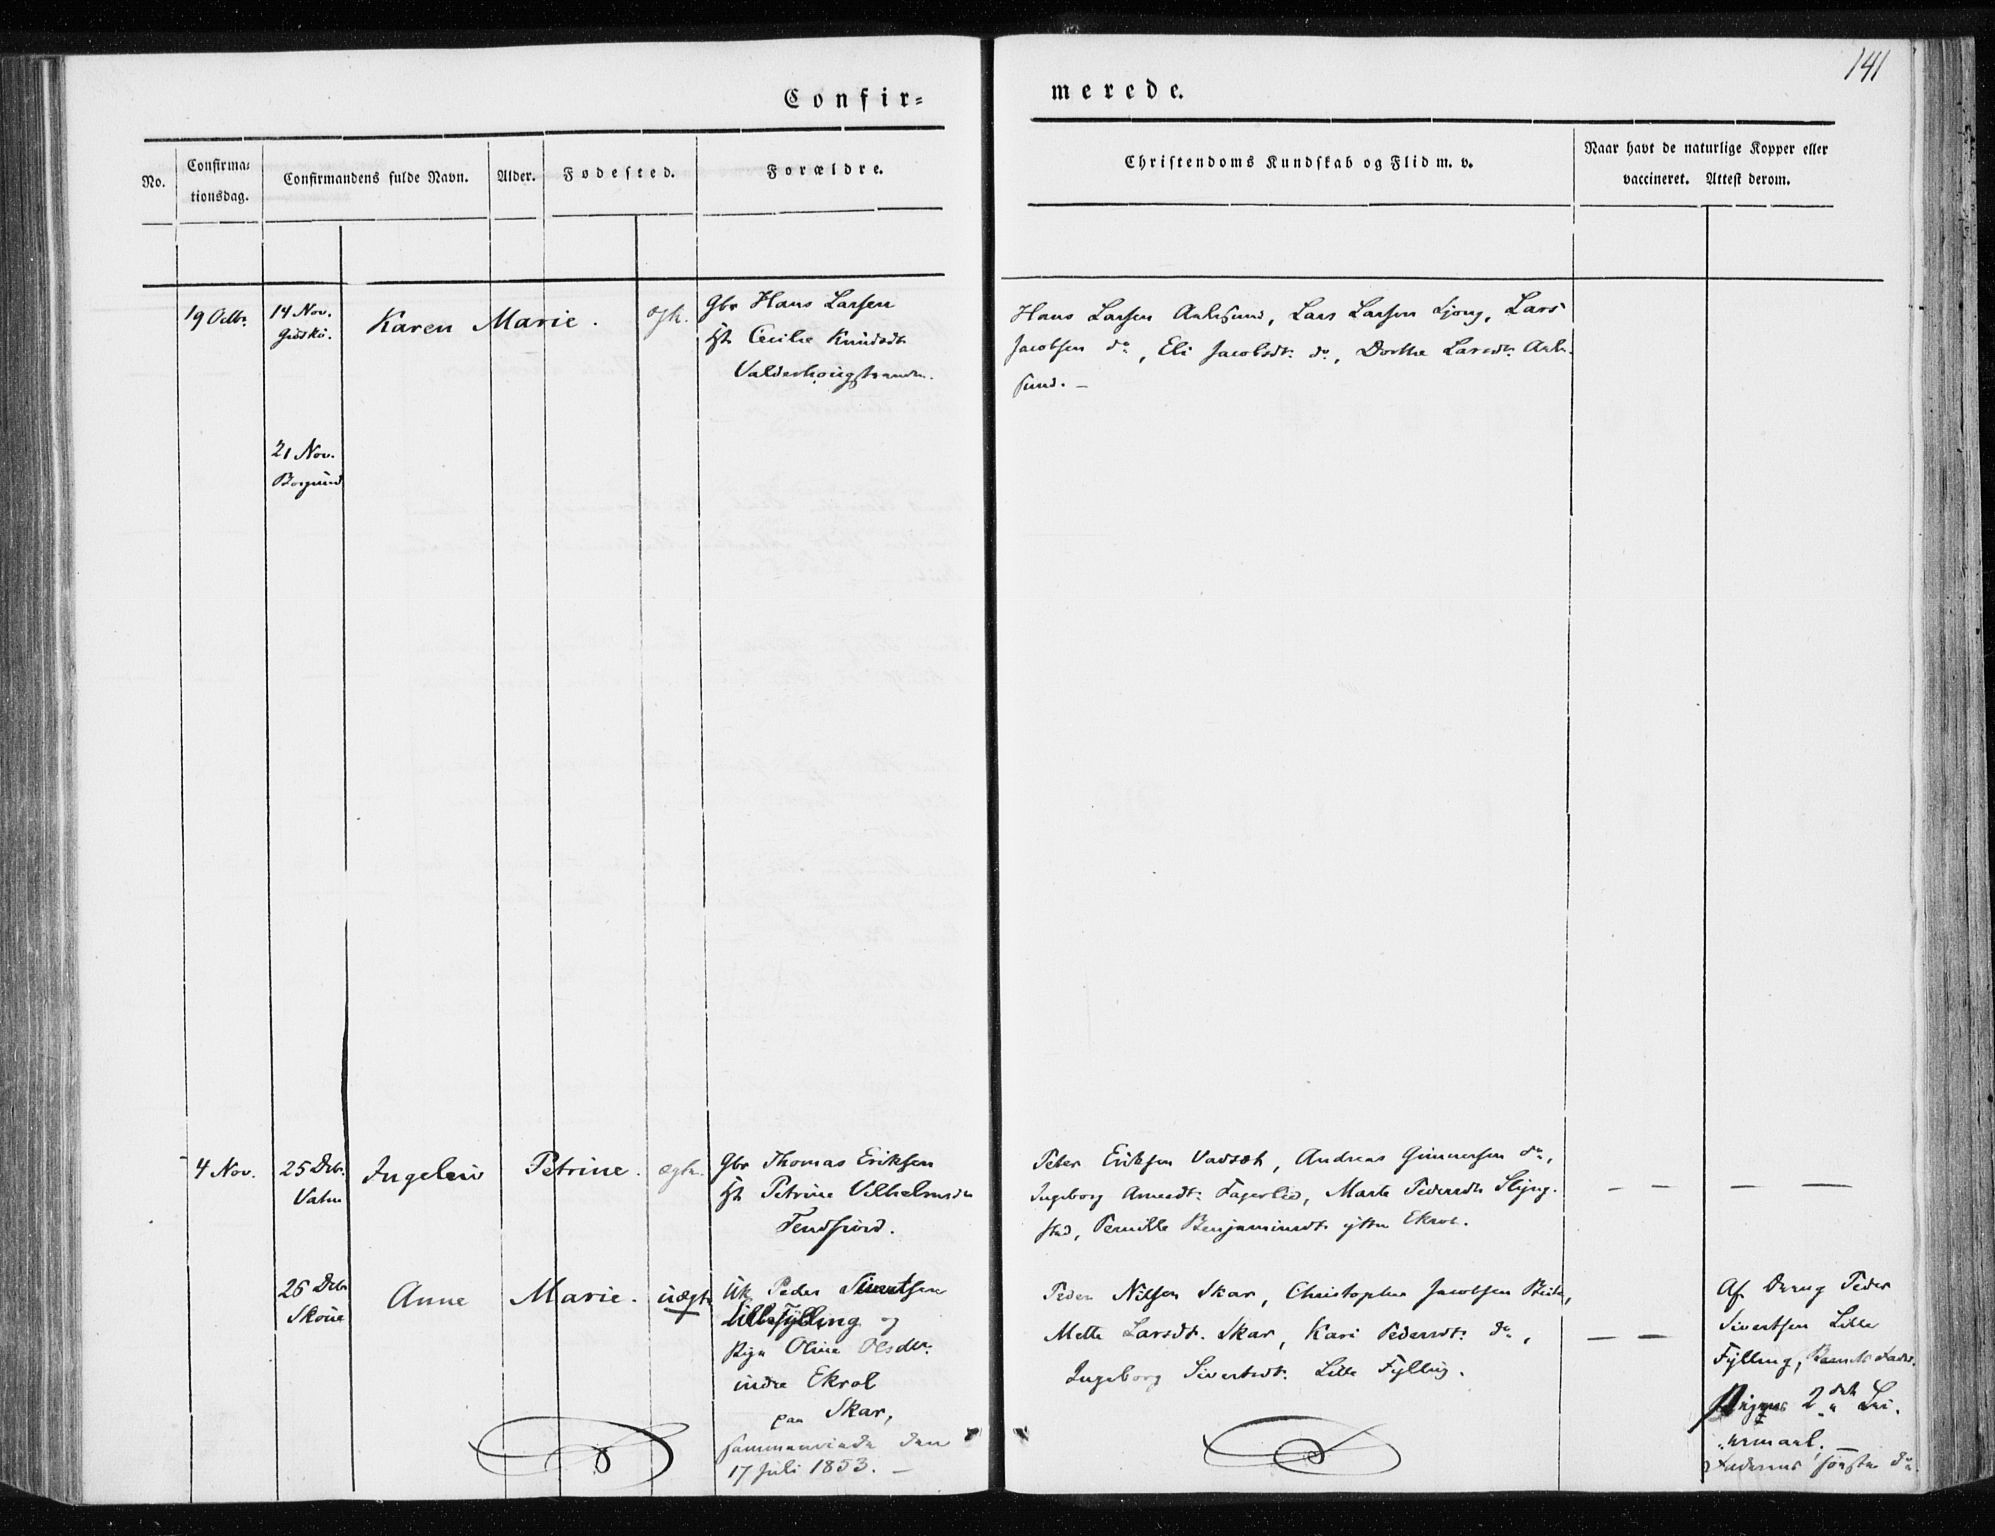 141
Confir=
merede.
No.
Confirma=
tionsdag.
Confirmandens fulde Navn.
Alder.
Fødested.
Forældre.
Christendoms Kundskab og Flid m. v.
Naar havt de naturlige Kopper eller
vaccineret. Attest derom.
19 Octbr. 14 Nov. Karen Marie. Gbr Hans Larsen
Hst Cecilie Knudsdtr
Hans Larsen Aalesund, Lars Larsen Ljong, Lars
Jacobsen do, Eli Jacobsdtr. do, Dorthe Larsdtr. Aale-
sund. —
21 Nov.
Borgund
4 Nov. 25 Dcbr. Petrine. ægte. Gbr Thomas Eriksen
Vatne Hst Petrine Vilhelmsdtr
Peter Eriksen Vadset, Andreas Gunnersen do,
Ingeborg Fagerlid, Marte Pedersdtr
stad, Pernille Benjaminsdtr. ytre Ekrol.
26 Dcbr Anne Marie. uægte Uk Peder Sivertsen
Lillefylling og
Pige Oline Olsdtr.
indre Ekrol
paa Skar,
sammenviede den
17 Juli 1853. —
Peder Nilsen Skar, Christopher Jacobsen
Mette Larsdt. Skar, Kari Pedersdt. do,
Ingeborg Sivertsdt. Lille Fylling.
Af Dreng Peder
Sivertsen Lille
Fylling,
Pigens 2det Lei-
ermaal,
Faderens første do